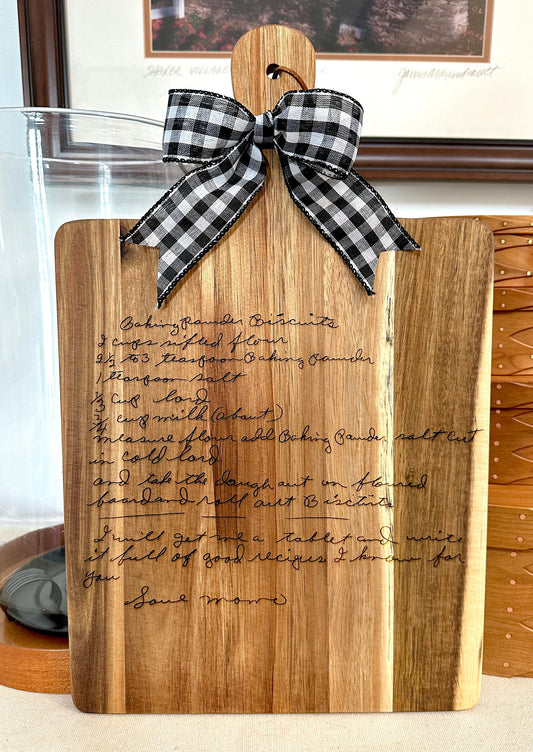 SHAKER VILLAGE
Baking Pawder Biscuits
2 cups sifted flour
2 1/2 to 3 teaspoon Baking Pawder
1 teaspoon salt
1/3 cup lard
3/4 cup milk (about)
measure flour add Baking Pawder salt cut
in cold lard
and take the dough out on floured
board and roll out Biscuits
I will get me a tablet and write
it full of good recipes I know for
you
Love mome